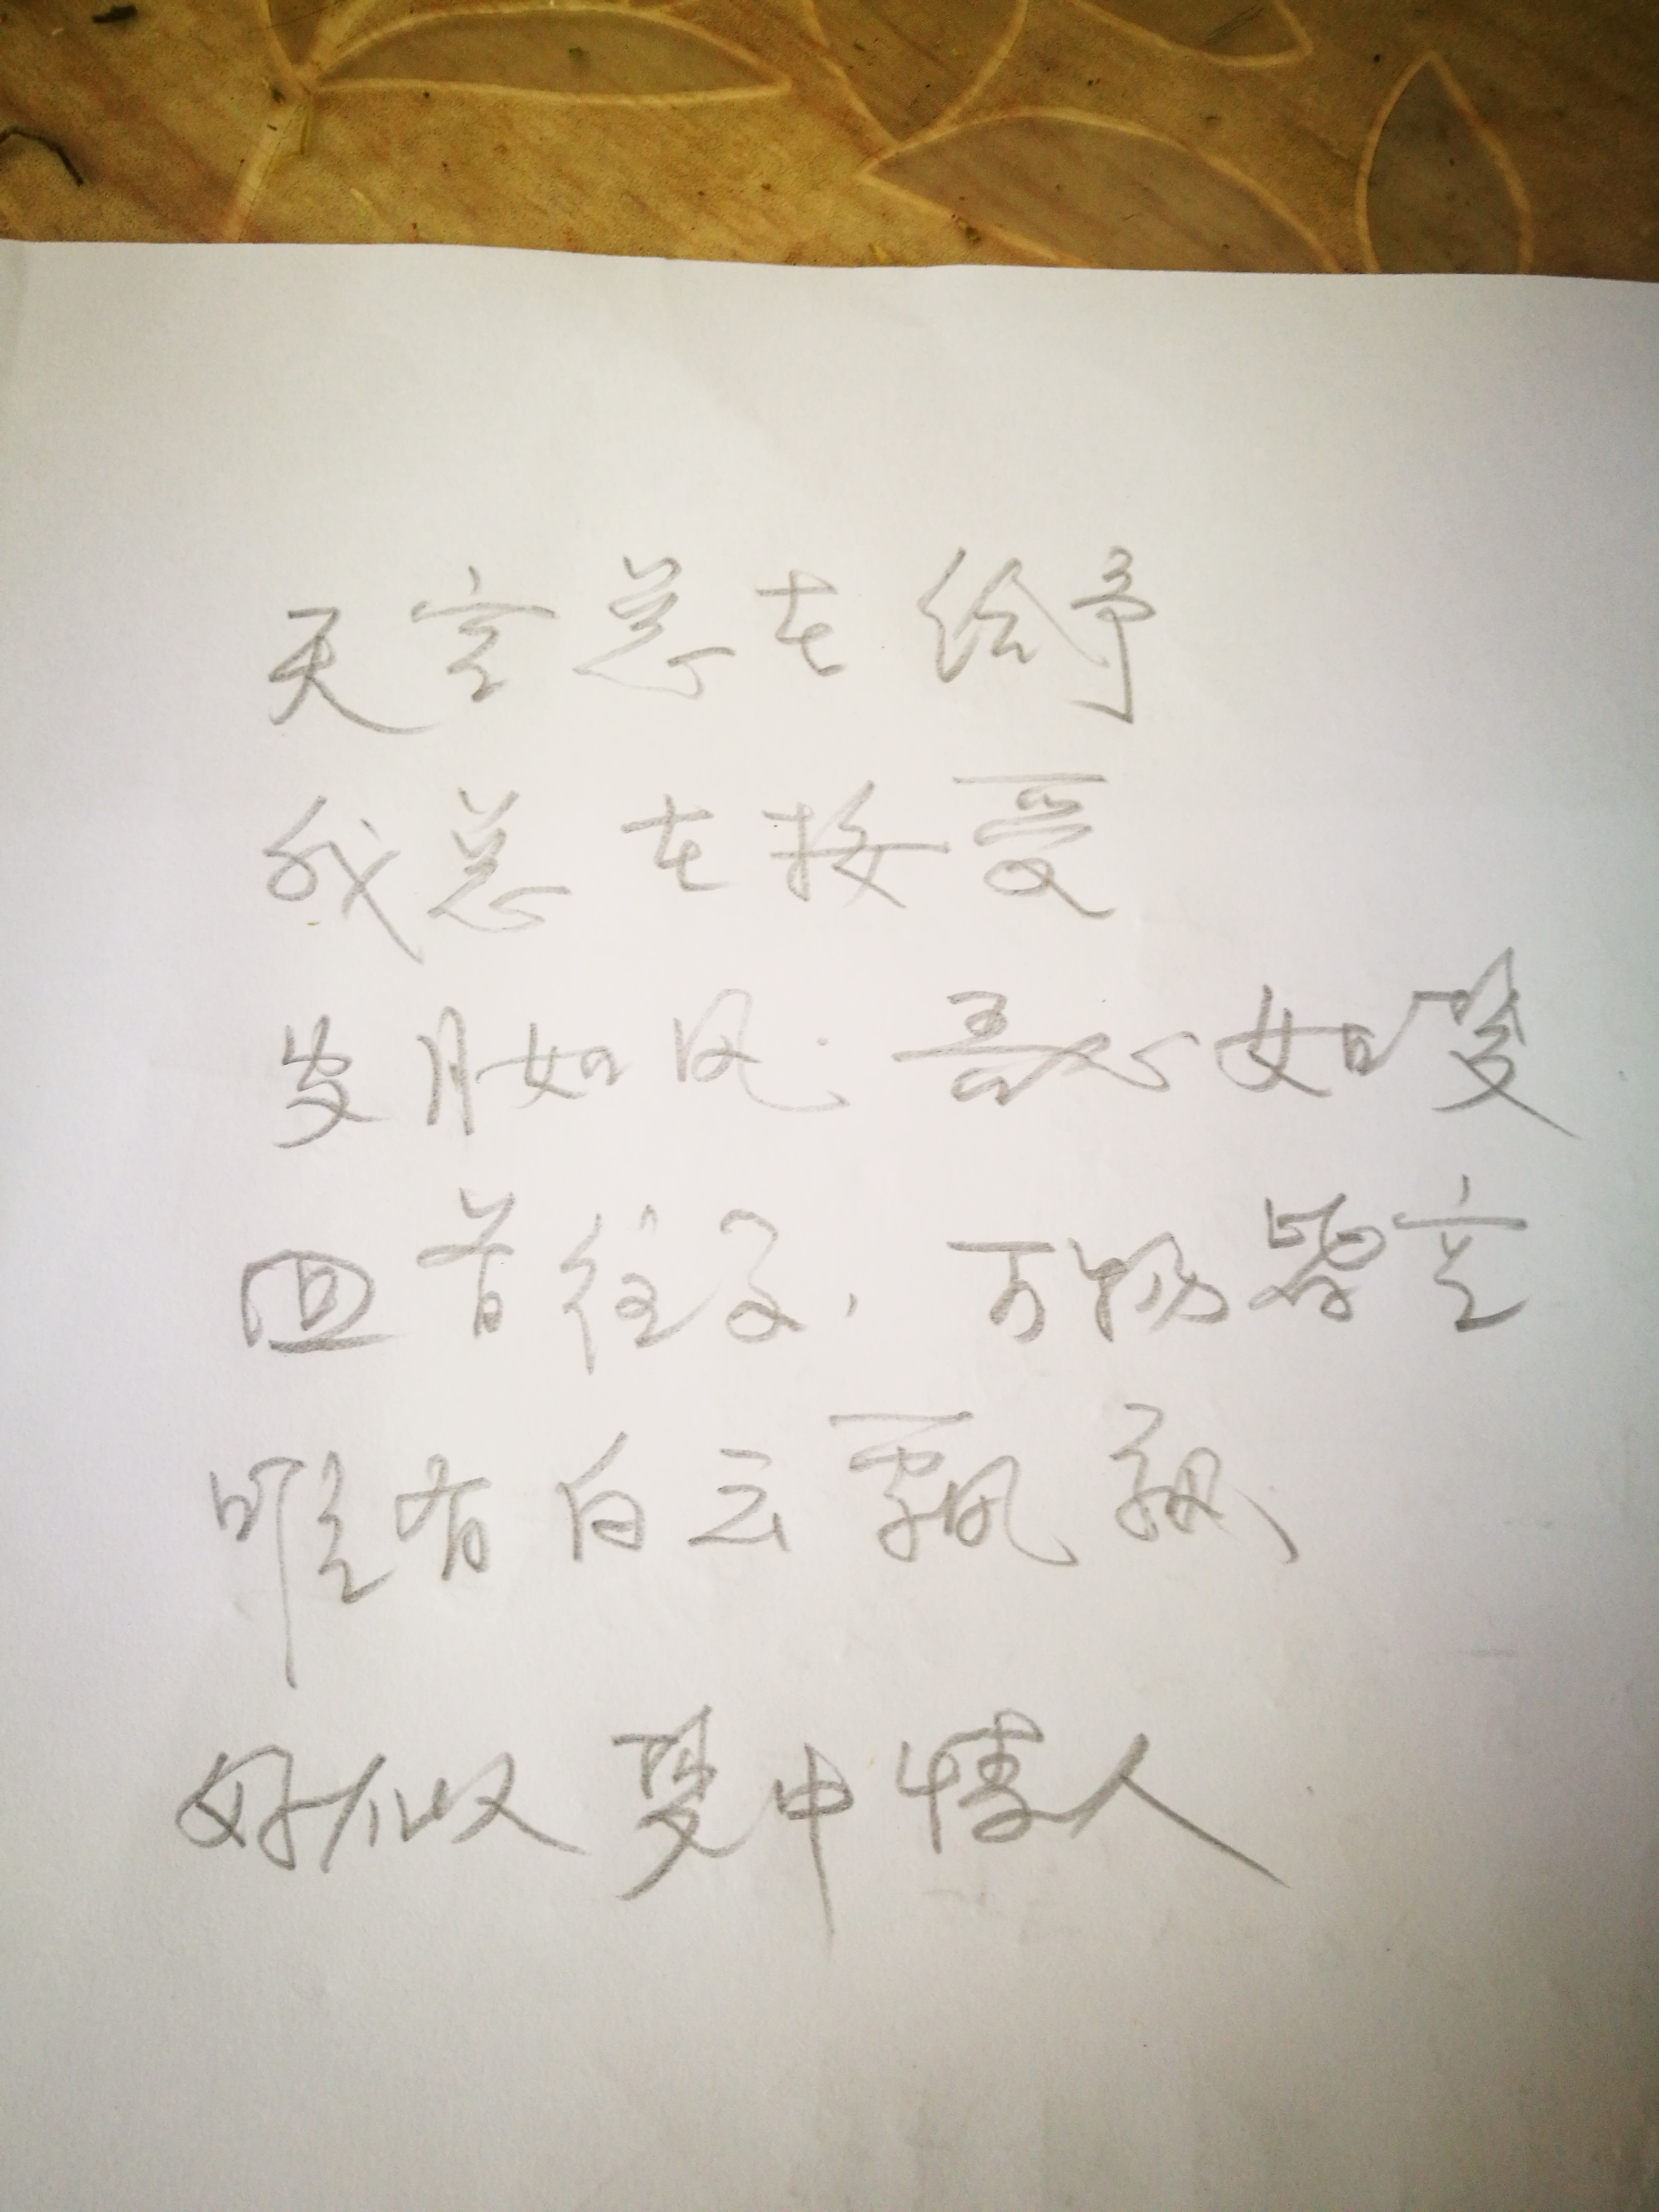 天空总在给予
我总在接受
岁月如风. 吾心如梦
回首往事, 万物皆空
唯有白云飘飘
好似梦中情人